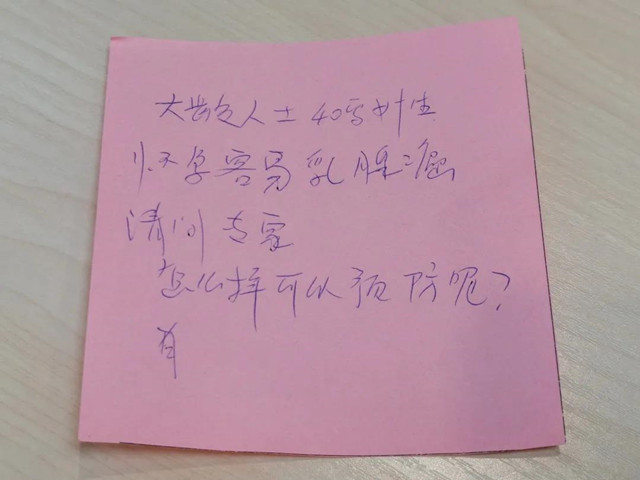 大龄人士 40岁女性
怀孕容易乳腺癌
请问专家
怎么样可以预防呢？
有